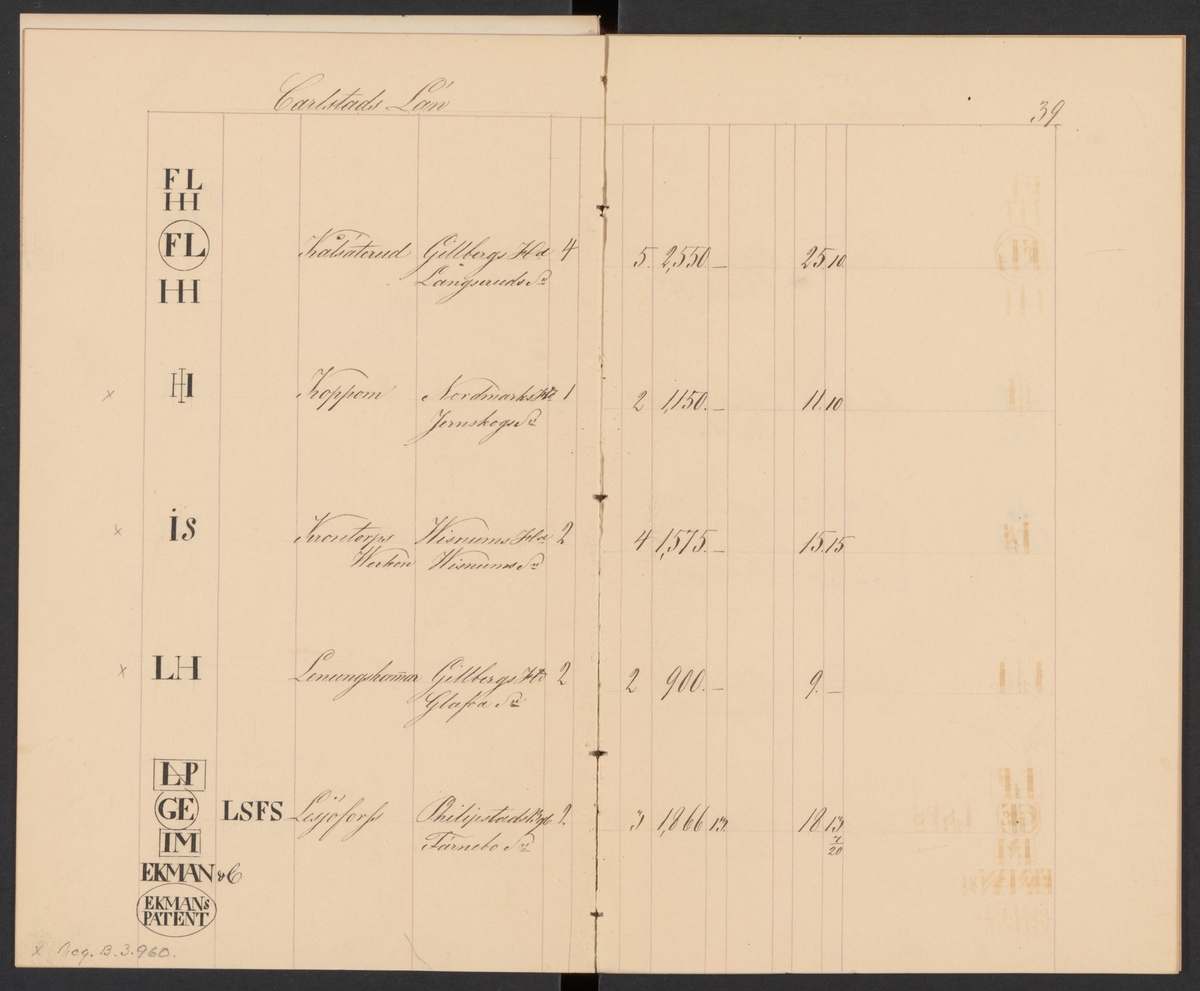 Carlstads Län
39
FL
HH
FL
HH
Kålsäterud Gillbergs Hd 4 5. 2,550. — 25. 10.
Långseruds Sn
x HI Koppom Nordmarks Hd 1 2 1,150. — 11. 10
Jernskogs Sn
x is Krontorps Wisnums Hd 2 4 1,575. — 15. 15
Werken Wisnums Sn
x LH Lenungshamar Gillbergs Hd 2 2 900. — 9. —
Glafva Sn
LP
GE LSFS Lesjöforss Philipstads Bgl 2. 3 1,866 13. 18 13.
7/20
IM Färnebo Sn
EKMAN & C
EKMANs
PATENT
x Reg. B. 3. 960.